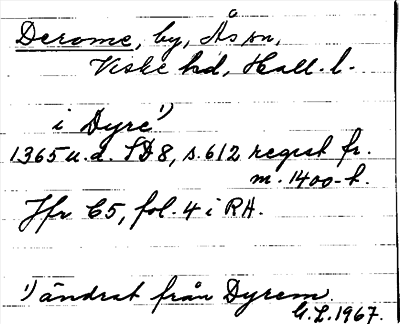 Derome, by, Ås sn,
Viske hd, Hall. l.
i Dyre¹⁾
1365 u.d. SD 8, s. 612 regest fr.
m. 1400-t.
Jfr C5, fol. 4 i RA.
¹⁾ ändrat från Dyrem.
G.L. 1967.